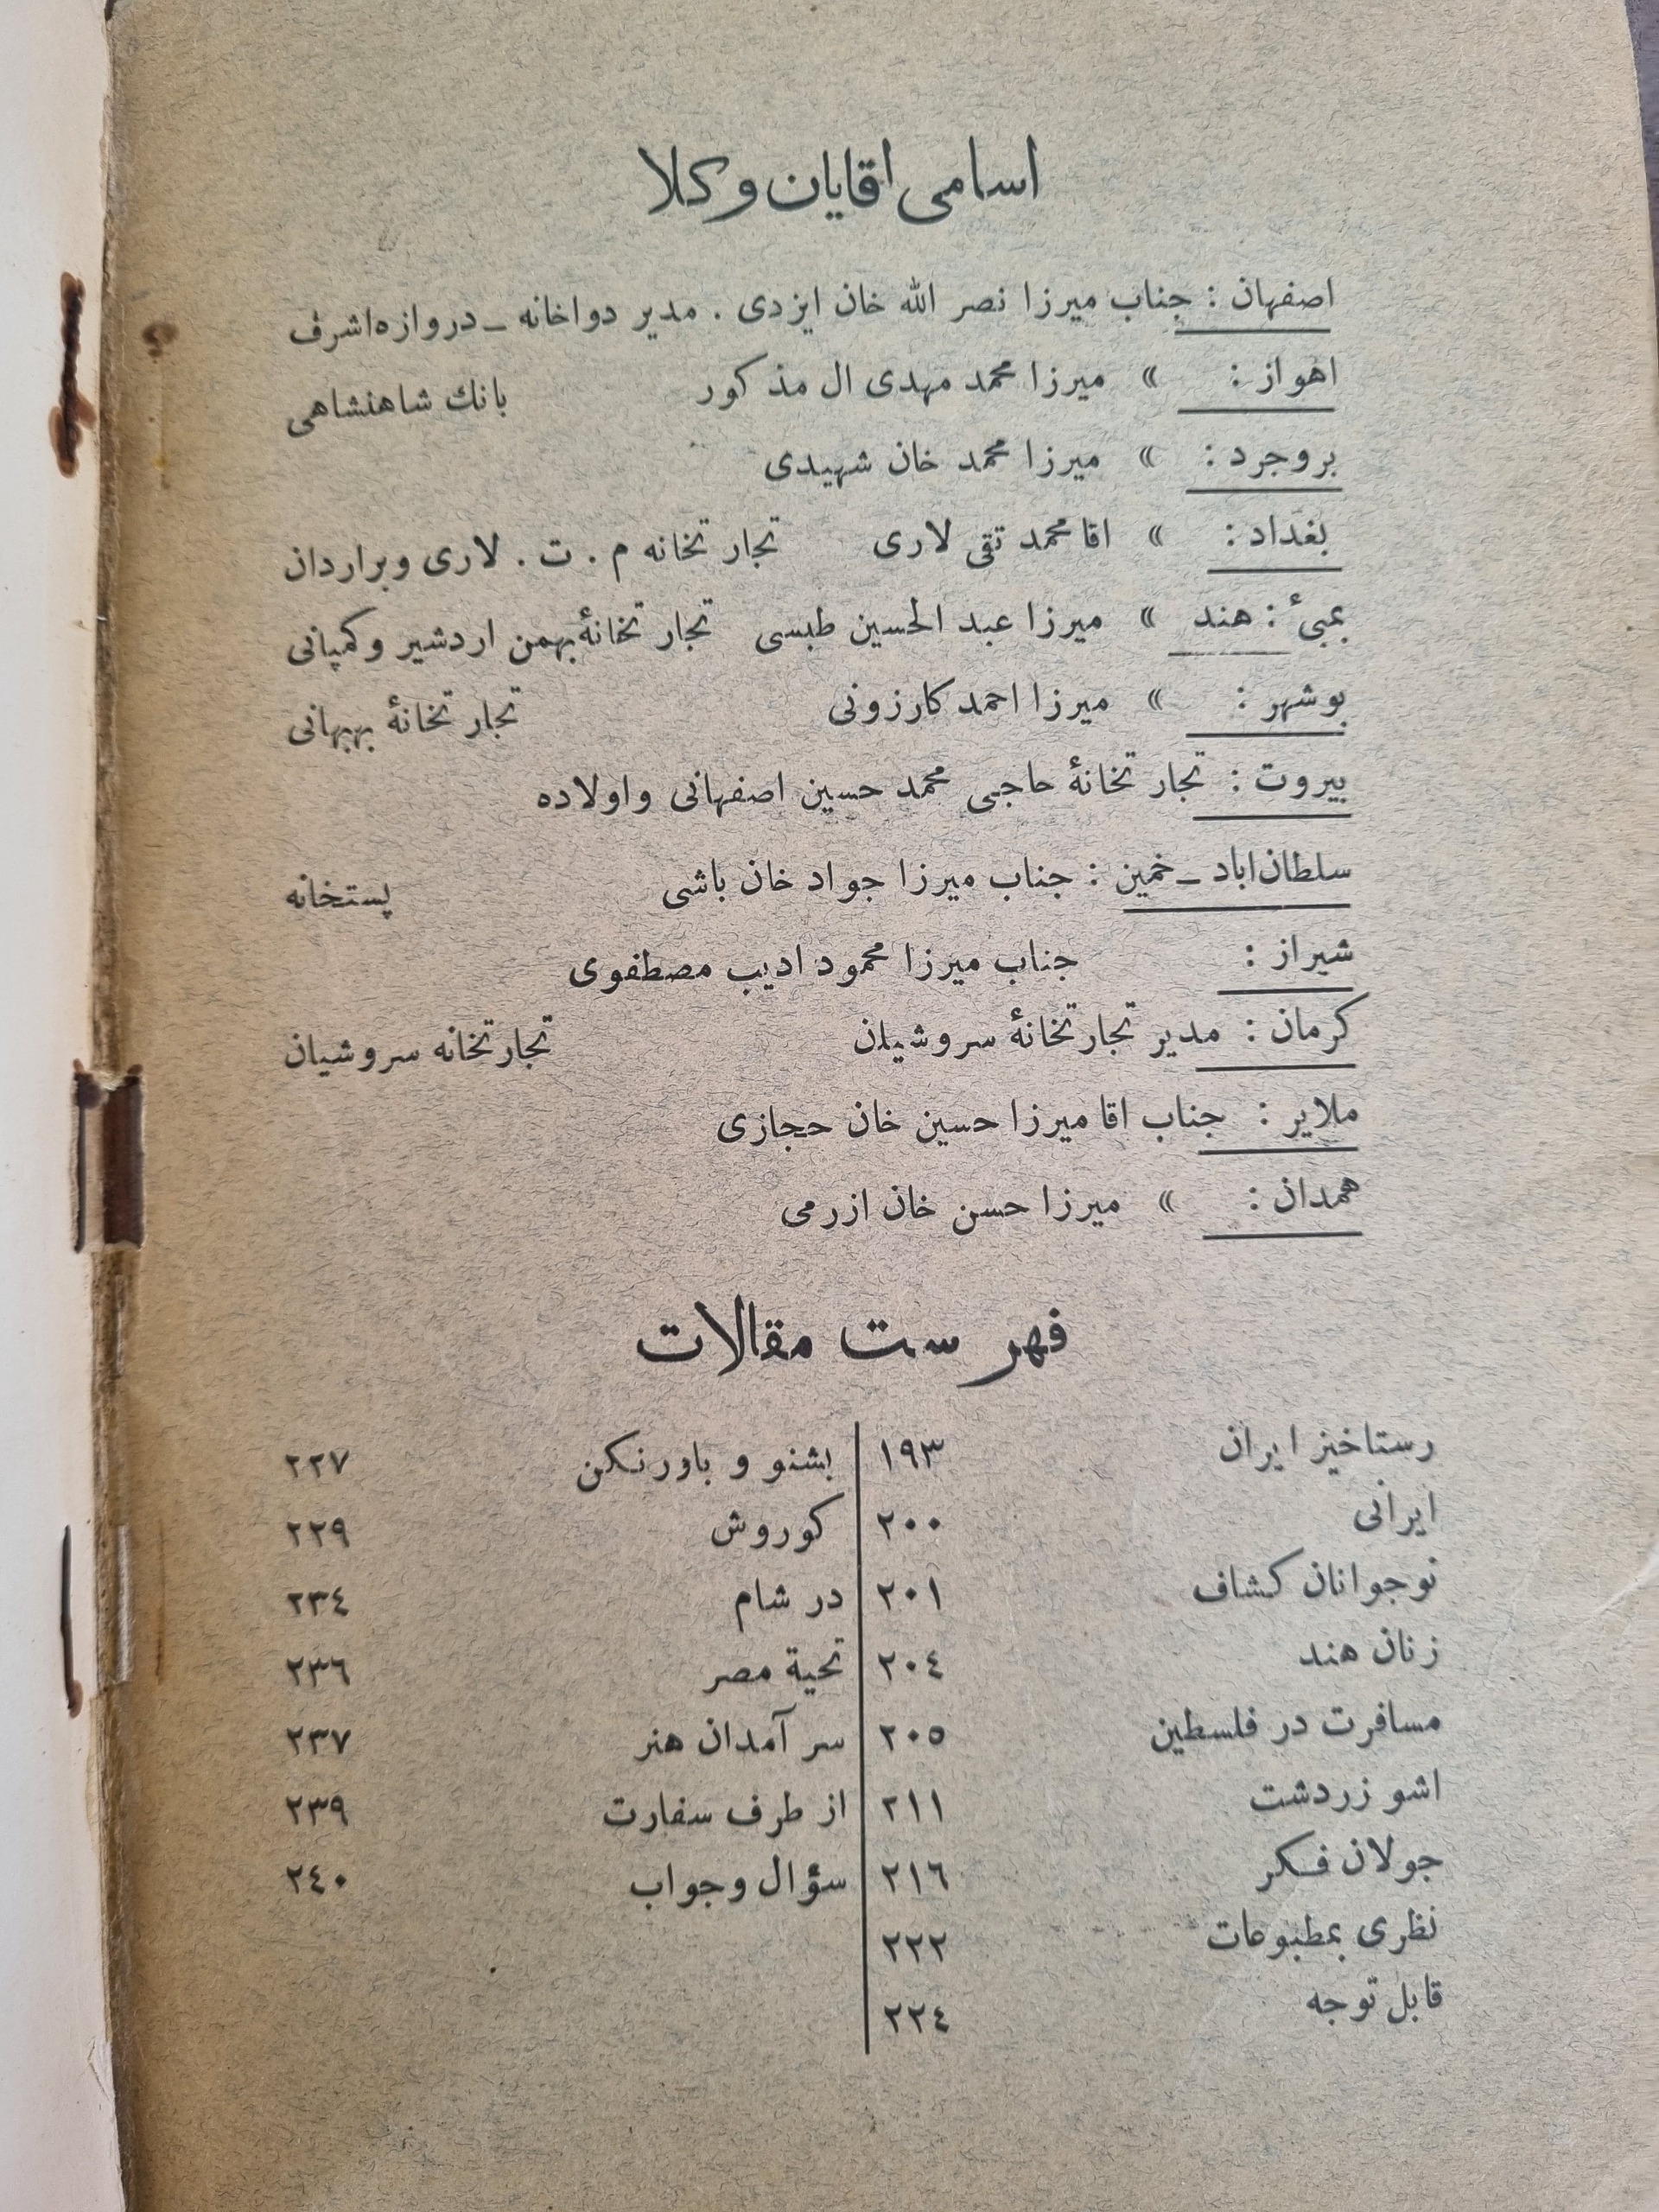 اسامی اقایان وکلا
اصفهان : جناب میرزا نصر الله خان ایزدی . مدیر دواخانه _ دروازه‌اشرف
اهواز : » میرزا محمد مهدی ال مذکور بانك شاهنشاهی
بروجرد : » میرزا محمد خان شهیدی
بغداد : » اقا محمد تقی لاری تجار تخانه م . ت . لاری وبراردان
بمبئ : هند » میرزا عبد الحسین طبسی تجار تخانهٔ بهمن اردشیر وکمپانی
بوشهر : » میرزا احمد کارزونی تجار تخانهٔ بهبهانی
بیروت : تجار تخانهٔ حاجی محمد حسین اصفهانی واولاده
سلطان‌اباد _ خمین : جناب میرزا جواد خان باشی پستخانه
شیراز : جناب میرزا محمود ادیب مصطفوی
کرمان : مدیر تجارتخانهٔ سروشیان تجارتخانه سروشیان
ملایر : جناب اقا میرزا حسین خان حجازی
همدان : » میرزا حسن خان ازرمی
فهرست مقالات
رستاخیز ایران ١٩٣
ایرانی ٢٠٠
نوجوانان کشاف ٢٠١
زنان هند ٢٠٤
مسافرت در فلسطین ٢٠٥
اشو زردشت ٢١١
جولان فکر ٢١٦
نظری بمطبوعات ٢٢٢
قابل توجه ٢٢٤
بشنو و باورنکن ٢٢٧
کوروش ٢٢٩
در شام ٢٣٤
تحیة مصر ٢٣٦
سر آمدان هنر ٢٣٧
از طرف سفارت ٢٣٩
سؤال وجواب ٢٤٠